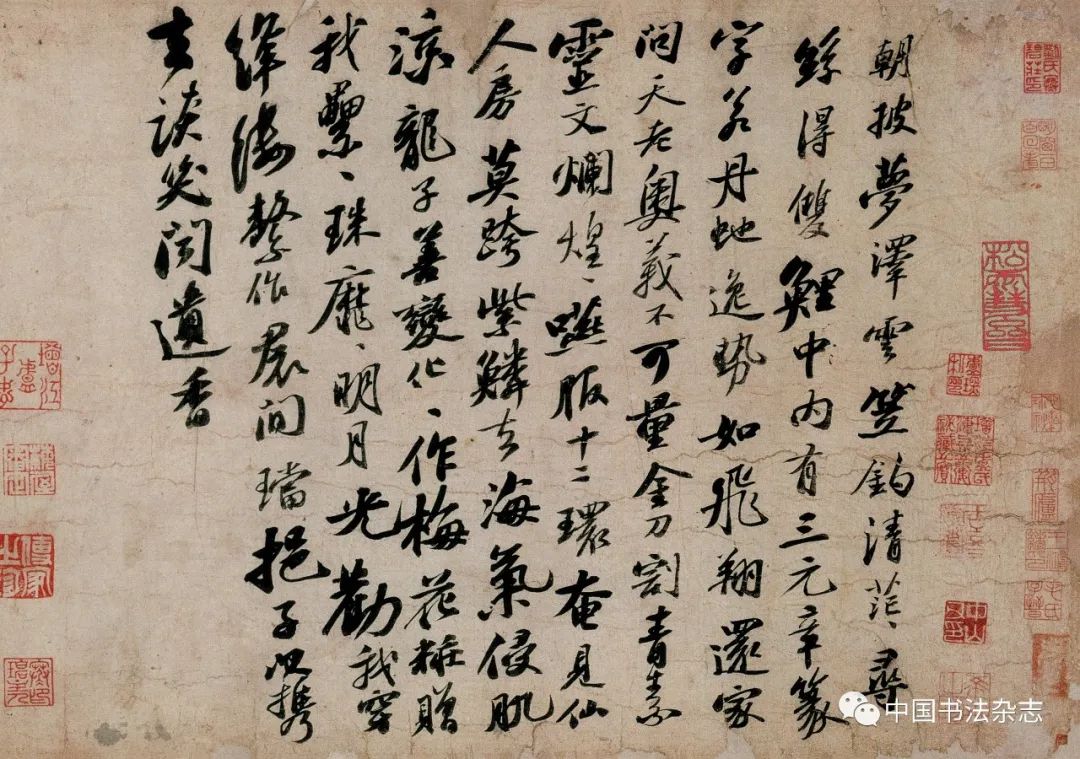 朝披夢澤雲笠釣清茫、尋
絲得雙鯉中內有三元章篆
字若丹虵逸勢如飛翔還家
問天老奧義不可量金刀割青素
靈文爛煌、嚥服十二環奄見仙
人房莫跨紫鱗去海氣侵肌
涼龍子善變化、作梅花粧贈
我纍、珠靡、明月光勸我穿
絳縷繫作裠間璫挹子以攜
去談笑聞遺香
中国书法杂志